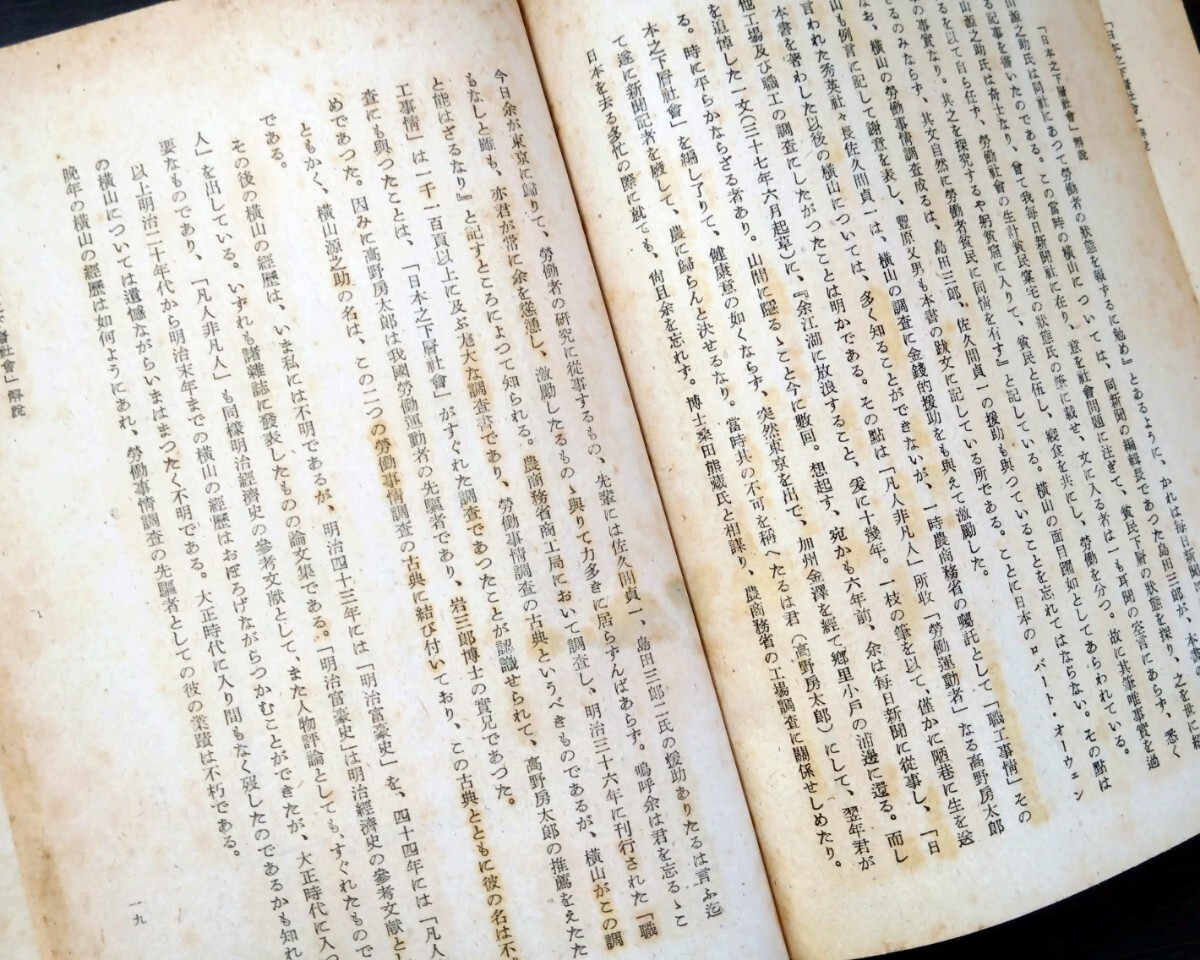 「日本之下層社會」解說
「日本之下層社會」解說
源之助氏は同社にあつて勞働者の狀態を報するに勉め』とあるように、かれは每日新聞
「日本之下層社會」を編し了りて、健康意の如くならず、突然東京を出で、加州金澤を經て鄕里小戸の浦邊に還る。而し
る記事を書いたのである。この當時の橫山については、同新聞の編輯長であつた島田三郎が、本書
山源之助氏は奇士なり、曾て我每日新聞社に在り、意を社會問題に注ぎて、貧民下層の狀態を探り、之を世に
るを以て自ら任ず、勞働社會の生計貧民窠宅の狀態氏の筆に觀せ、文に入る者は一も耳聞の空言にあらず、悉く
の事實なり。其之を探究するや躬貧窟に入りて、貧民と伍し、寢食を共にし、勞働を分つ。故に其筆唯事實を過
きるのみならず、其文自然に勞働者貧民に同情を有す』と記している。橫山の面目躍如としてあらわれている。
なお、橫山の勞働事情調査成るは、島田三郎、佐久間貞一の援助も與つていることを忘れてはならない。その點は
山も例言に記して謝意を表し、豐原又男も本書の跋文に記している所である。ことに日本のロバート・オーウェン
言われた秀英社々長佐久間貞一は、橫山の調査に金錢的援助をも與えて激勵した。
本書を著わした以後の橫山については、多く知ることができないが、一時農商務省の囑託として「職工事情」その
他工場及び職工の調査にしたがつたことは明かである。その點は「凡人非凡人」所收「勞働運動者」なる高野房太郎
を追悼した一文(三十七年六月起草)に、『余江湖に放浪すること、爰に十幾年。一枝の筆を以て、僅かに陋巷に生を送
る。時に平らかならざる者あり。山間に隱るゝこと今に數回。想起す、宛かも六年前、余は每日新聞に從事し、「日
本之下層社會」を編し了りて、健康意の如くならず、突然東京を出で、加州金澤を經て鄕里小戸の浦邊に還る。而し
て遂に新聞記者を廢して、農に歸らんと決せるなり。當時其の不可を稱へたるは君(高野房太郎)にして、翌年君が
日本を去る多忙の際に就ても、尙且余を忘れず。博士桑田熊藏氏と相謀り、農商務省の工場調査に關係せしめたり。
今日余が東京に歸りて、勞働者の硏究に從事するもの、先輩には佐久間貞一、島田三郎二氏の援助ありたるは言ふ迄
もなしと雖も、亦君が常に余を慫慂し、激勵したるもの、與りて力多きに居らずんばあらず。嗚呼余は君を忘るゝこ
と能はざるなり』と記すところによつて知られる。農商務省商工局において調査し、明治三十六年に刊行された「職
工事情」は一千一百頁以上に及ぶ尨大な調査書であり、勞働事情調査の古典というべきものであるが、橫山がこの調
査にも與つたことは、「日本之下層社會」がすぐれた調査であつたことが認識せられて、高野房太郎の推薦をえたた
めであつた。因みに高野房太郎は我國勞働運動者の先驅者であり、岩三郎博士の實兄であつた。
ともかく、橫山源之助の名は、この二つの勞働事情調査の古典に結び付いており、この古典とともに彼の名は不
である。
その後の橫山の經歷は、いま私には不明であるが、明治四十三年には「明治富豪史」を、四十四年には「凡人
人」を出している。いずれも諸雜誌に發表したものの論文集である。「明治富豪史」は明治經濟史の參考文獻とし
要なものであり、「凡人非凡人」も同樣明治經濟史の參考文獻として、また人物評論としても、すぐれたもので
以上明治二十年代から明治末年までの橫山の經歷はおぼろげながらつかむことができたが、大正時代に入つ
の橫山については遺憾ながらいまはまつたく不明である。大正時代に入り間もなく歿したのであるかも知れ
晚年の橫山の經歷は如何ようにあれ、勞働事情調査の先驅者としての彼の業蹟は不朽である。
層社會」解說
一九